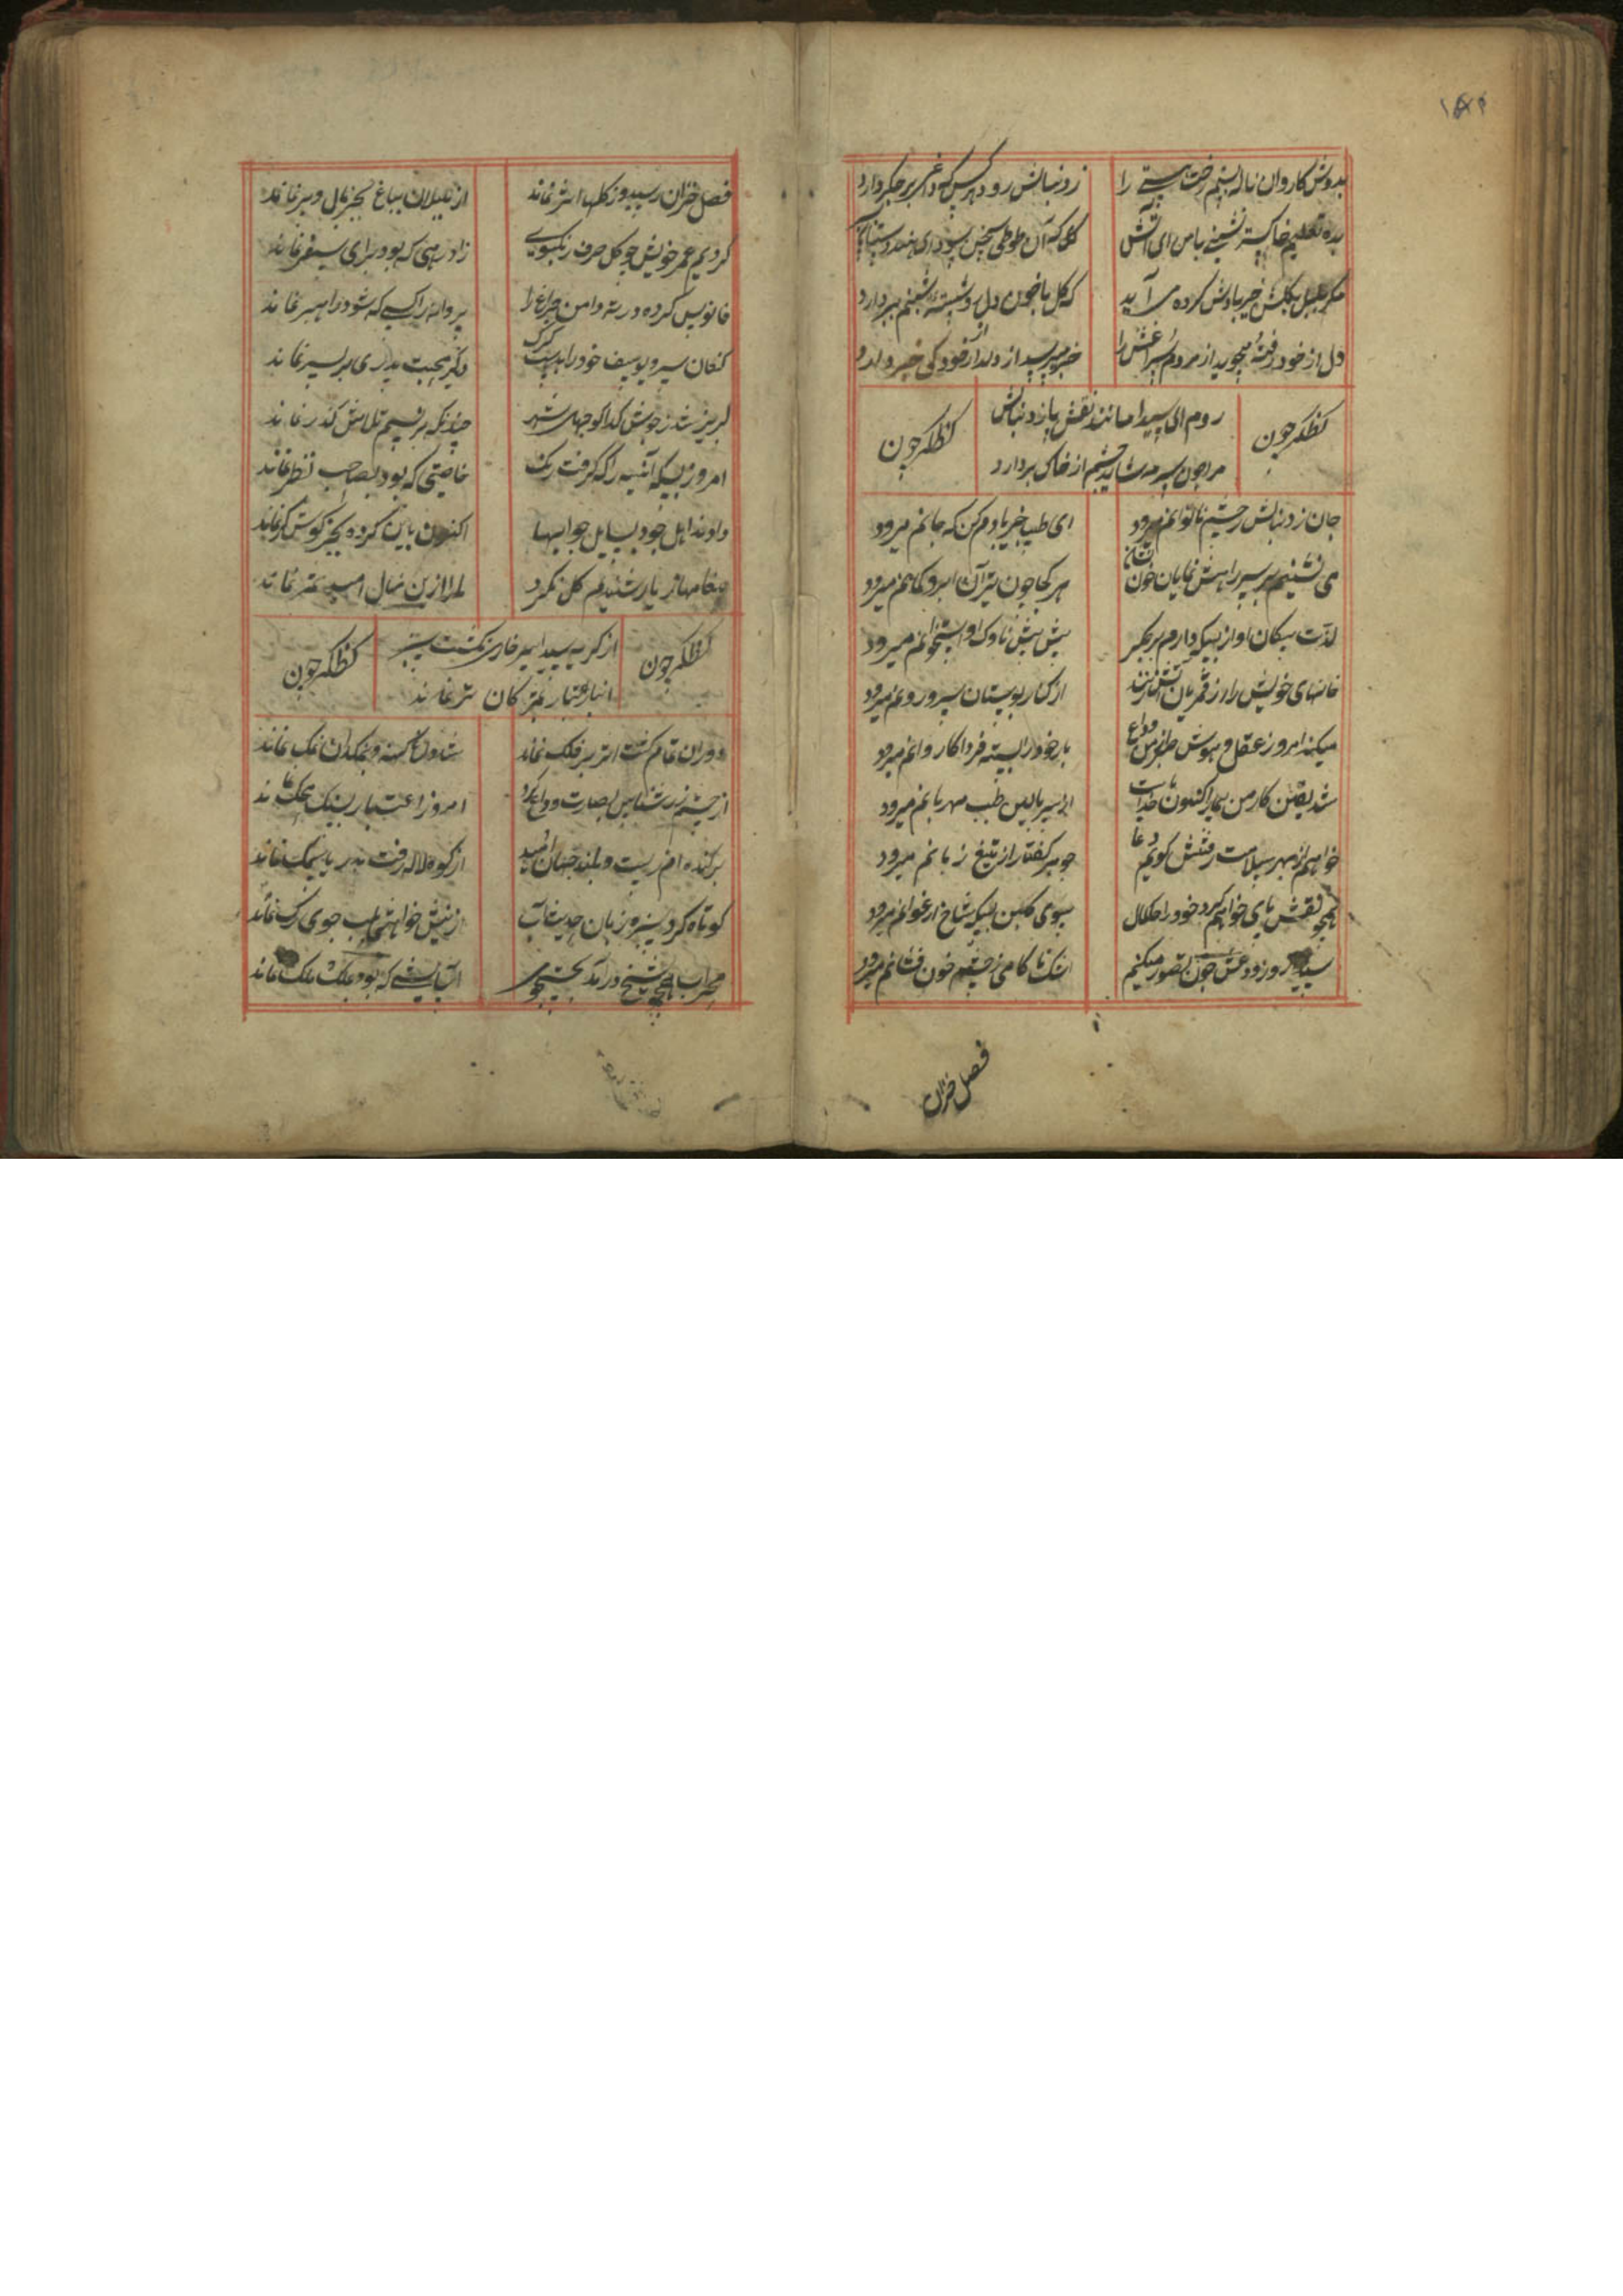 ۱۸۲
بدوش کاروان ناله بستم رخت هستی را
ز دنبالش رود هر کس که داغی بر جگر دارد
بده تعلیم خاکستر نشینی با من ای آتش
مگر بلبل بگلشن خیربادش کرده می آید
که گل با خون دل شبنم بردارد
دل از خود رفته میجوید از مردم سراغش را
خبر میپرسد از دلدار خود کی خبر دارد
لفظک چون
روم ای سیدا مانند نقش پا ز دنبالش
لفظک چون
مرا چون سرمه شاید چشم از خاک بردارد
جان ز دنبالش ز چشم ناتوانم میرود
ای طبیب خیربادم کن که جانم میرود
می نشینم بر سر راهش نمایان چون نشان
هر کجا چون تیر آن ابرو کمانم میرود
لذت پیکان او از بسکه دارم بر جگر
پیش پیش ناوک او استخوانم میرود
خانهای خویش را از قمریان آتش زنند
از کنار بوستان سرو روانم میرود
میکند امروز عقل و هوش وداع
بار خود را بسته فردا کاروانم میرود
شد یقین کار من بیمار اکنون با خداست
از سر بالین طبیب مهربانم میرود
خواهم از بهر سلامت رفتنش گویم دعا
جوهر گفتار از تیغ زبانم میرود
همچو نقش پای خواهم کرد خود را
سوی گلبن بسکه شاخ ارغوانم میرود
سیدا روز وداعش چون تصور میکنم
اشک ناکامی ز چشم خون فشانم میرود
فصل خزان
فصل خزان رسید و ز گلها اثر نماند
از بلبلان بباغ بجز بال و پر نماند
کردیم عمر خویش چو گل صرف رنگ و بوی
زاد رهی که بود برای سفر نماند
فانوس کرده در ته دامن چراغ را
پروانه را کسی که شود راهبر نماند
کنعان سپرد یوسف خود را بدست گرگ
دیگر محبت پدری بر پسر نماند
لبریز شد ز جوش گدا کوچهای شهر
چندانکه بر نسیم تلاش گذر نماند
امروز بسکه آئینه را گرفت زنگ
خاصیتی که بود بصاحب نظر نماند
دادند اهل جود بسایل جوابها
اکنون باین گروه بجز گوش کر نماند
پیغامها ز یار شنیدیم گل نکرد
ما را ازین نهال امید ثمر نماند
لفظک چون
از گریه سیدا سر خاری نگشت سبز
لفظک چون
نماند
دوران تمام گشت اثر بر فلک نماند
شد داغ کهنه و بنمکدان نمک نماند
از چشم زرشناس بصارت وداع کرد
امروز اعتبار بسنگ محک نماند
از کوه لاله رفت بدریا سمک نماند
کوتاه کرد سبزه زبان حدیث آب
محراب همچو شیخ درآمد بجستجوی
آسایشی که بود بملک ملک نماند